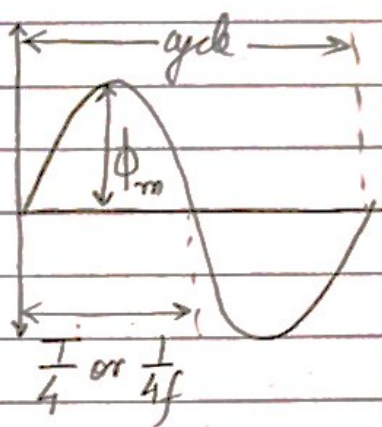 cycle
ϕm
T/4 or 1/4f